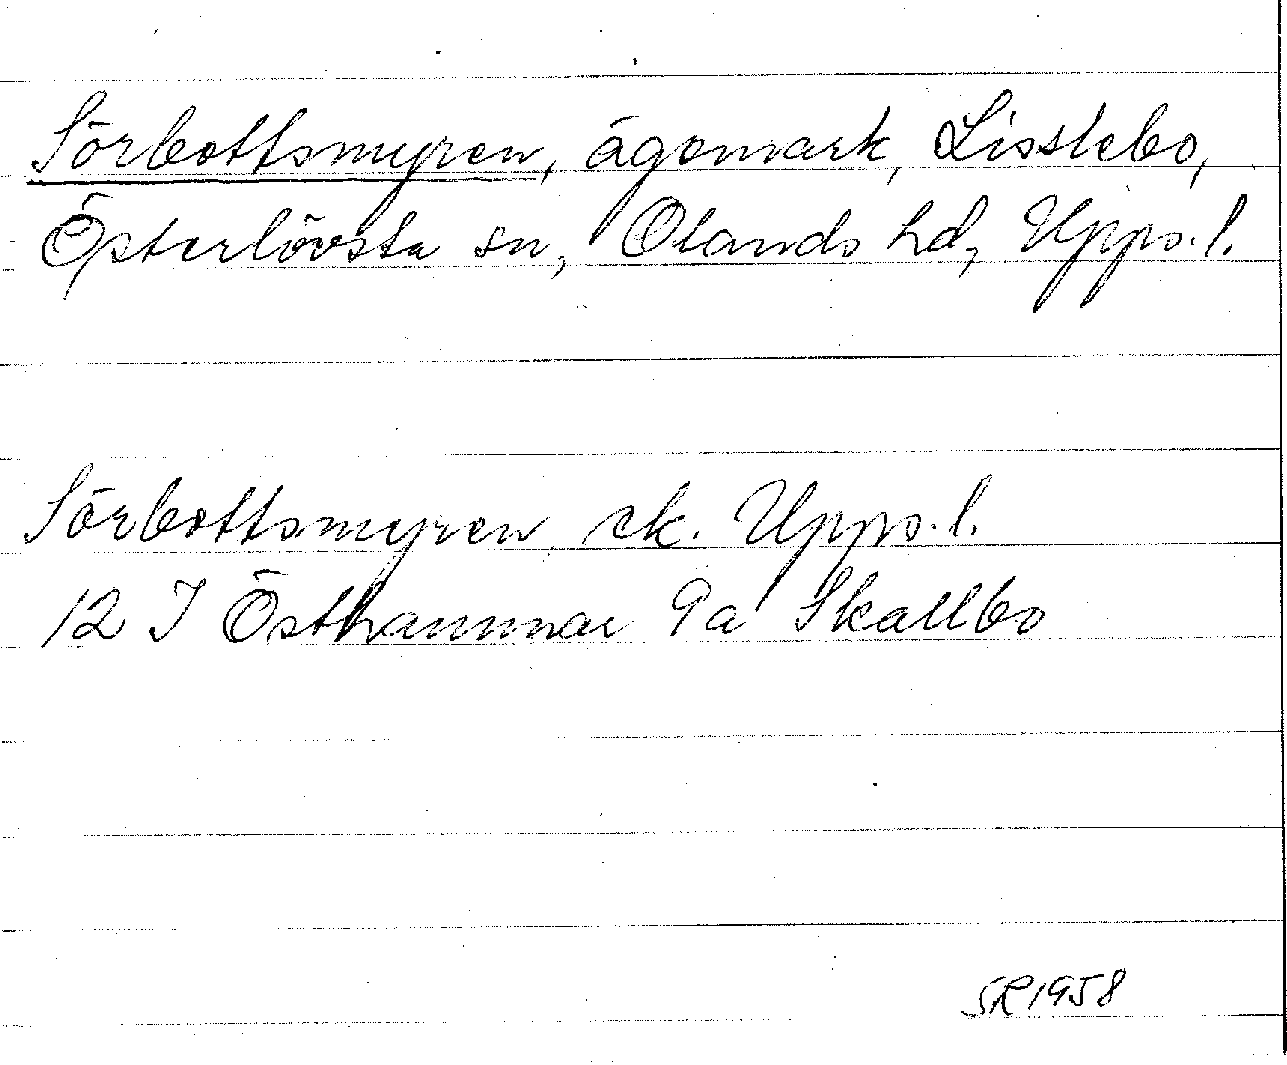 Sörbottsmyren, ägomark, Lisslebo,
Österlövsta sn, Olands hd, Upps. l.
Sörbottsmyren ek. Upps. l.
12 I Östhammar 9a Skallbo
SR 1958